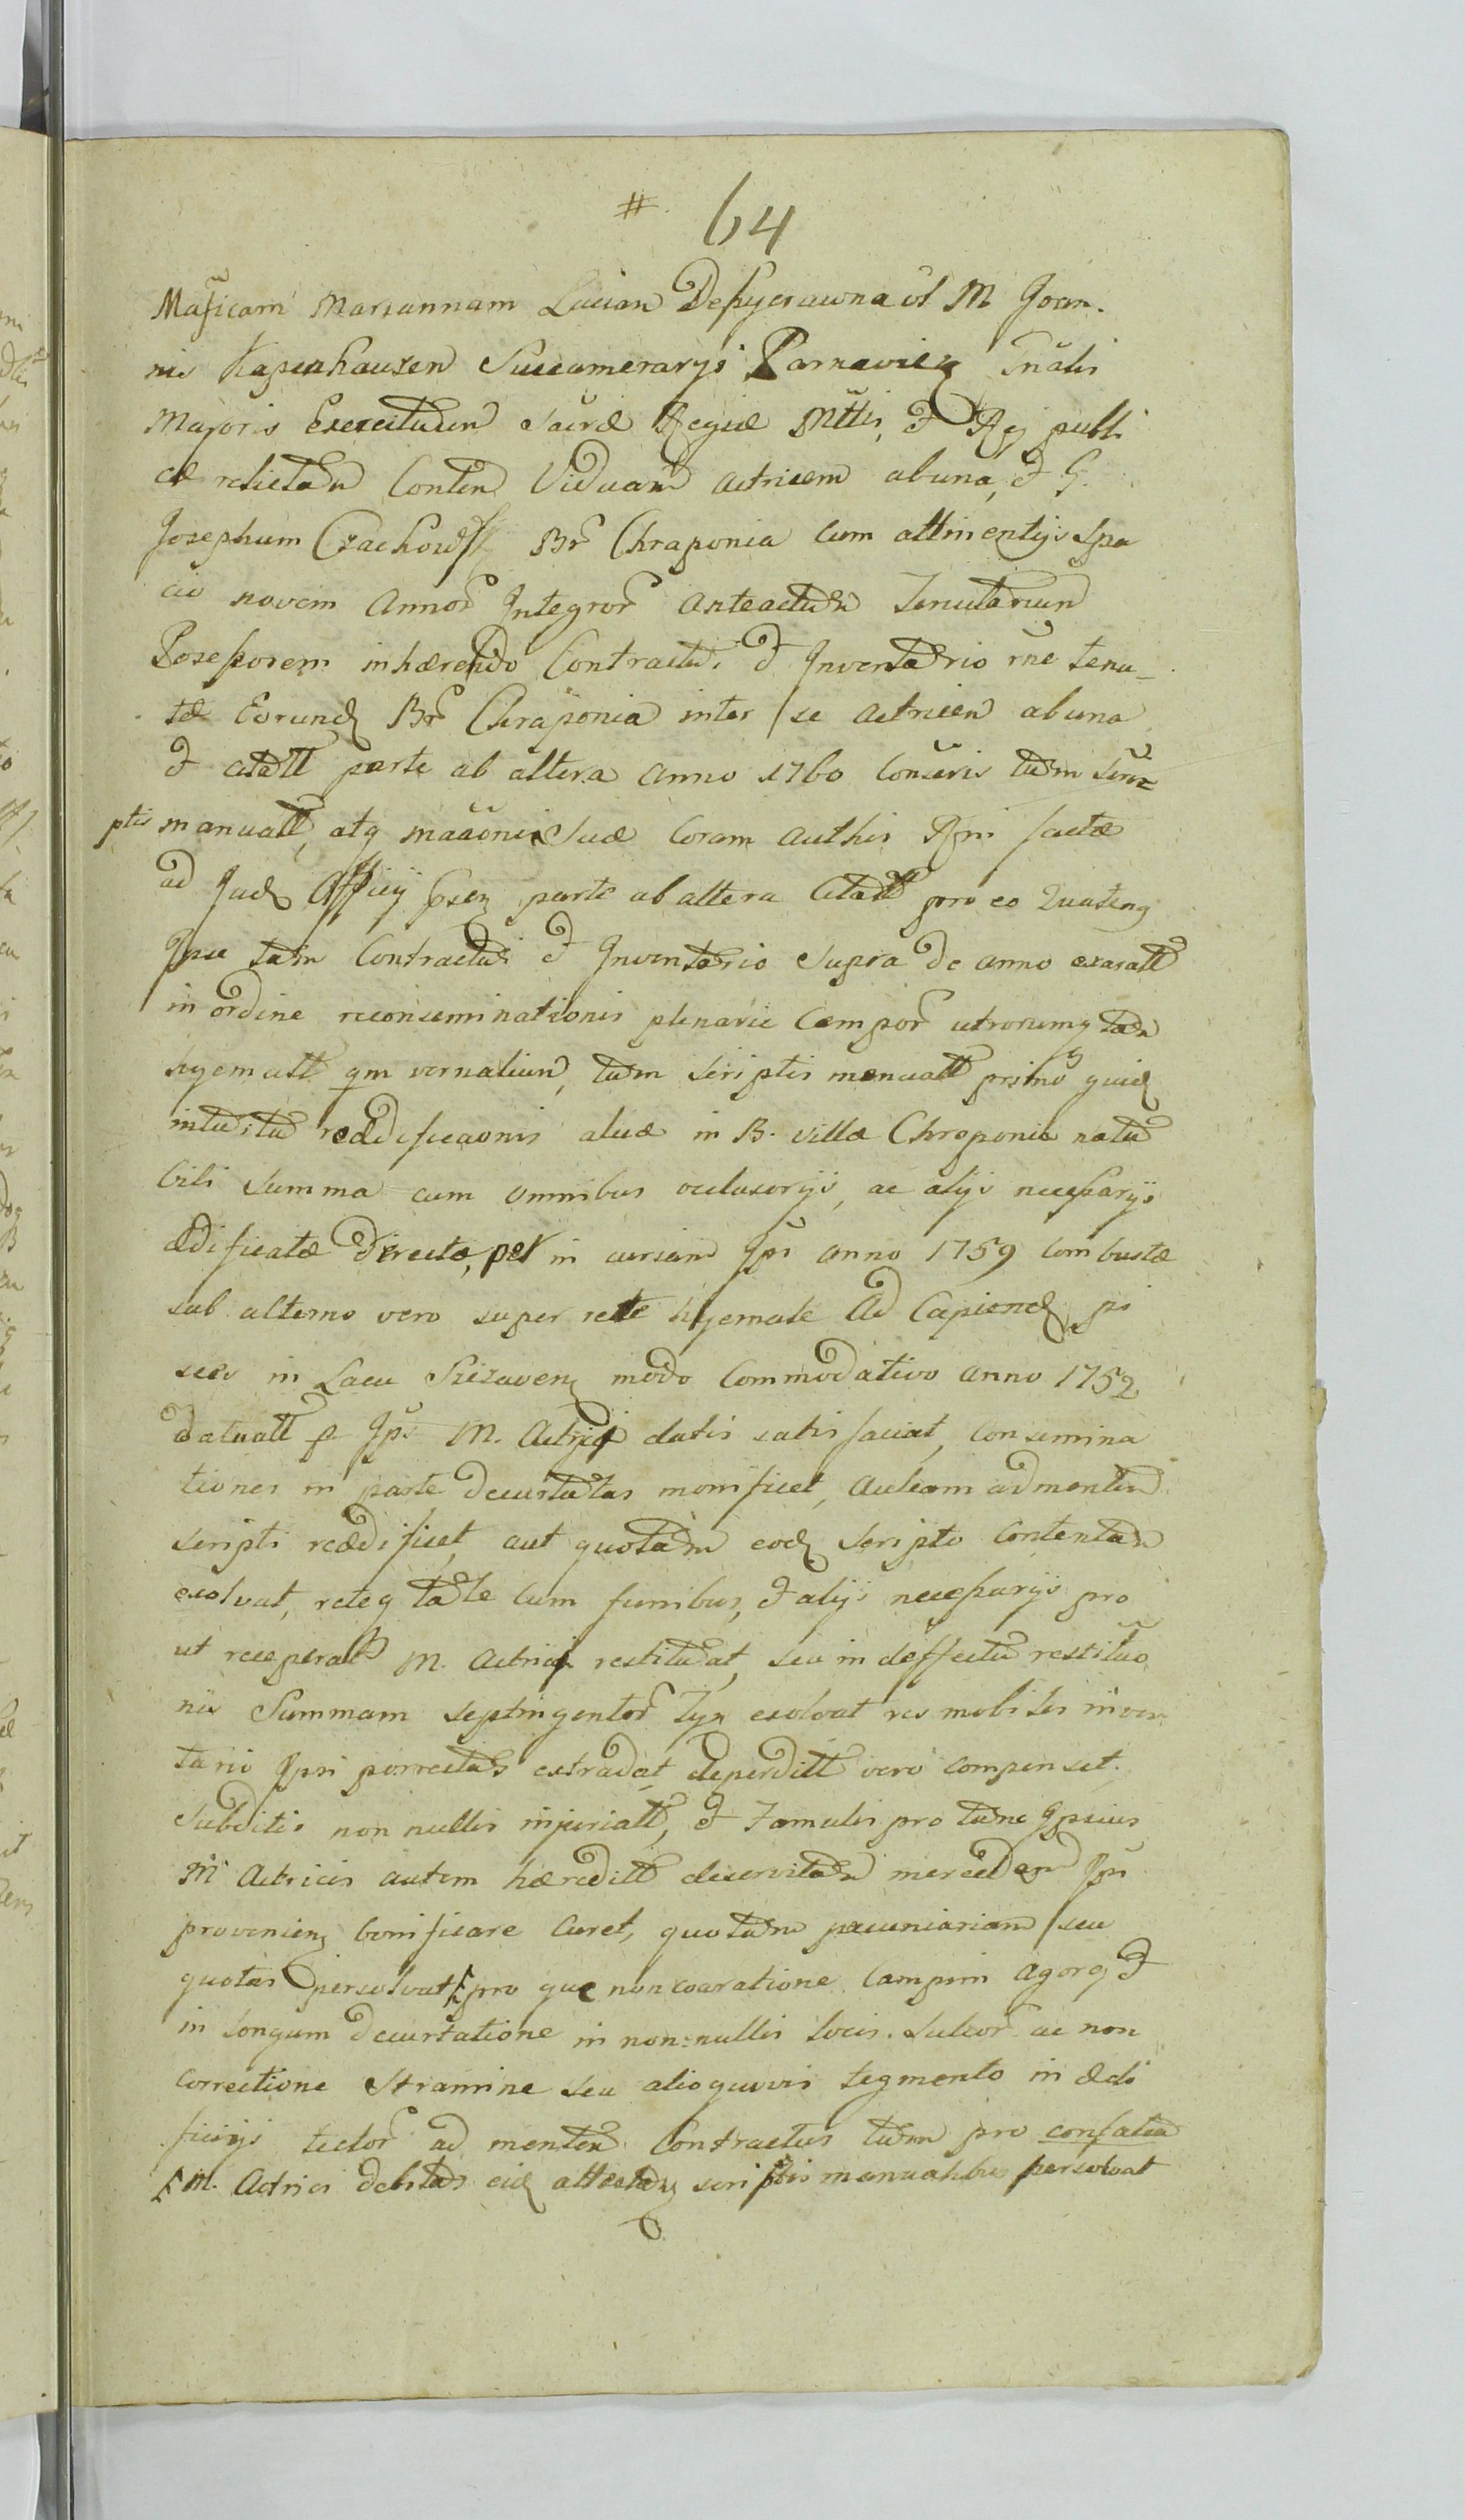 # 64
Mag̃ficam Mariannam Lucian Depszyczowna ol M Joan.
nis Kapenhausen Succamerarÿi Parnavien Gnãlis
Majoris Exercituum Sacræ Regiæ Mttis, et Reipubli
cæ relictam Conten Viduam actricem ab una, et G.
Josephum Czachowski Br̃ Chraponia cum attinentijs Spa
cio novem Annor̃ Integror̃ anteactum Tenutarium
Possessorem inhærendo Contractui et Inventario rñe tenu_
tæ Eorund Br̃ Chraponia inter se Actricem ab una
et citatt parte ab altera anno 1760 Conscris tum Scri
ptis manuatt, atq mãaonis Suæ Coram authis Rgni factæ
ad Jud Officij psen parte ab altera Citatt pro eo Quateng
Ipse tam Contractui et Inventario Supra de anno exaratt
in ordine reconseminationis plenarie Campor̃ utrorumq tam
hyematt qm vernalium, tum Scriptis manuatt primo quid
intuitu reædificaonis alvæ in B. villa Chroponia natu
bili Summa cum omnibus oclusorijs, ac alijs necessarijs
ædificatæ Directæ, per in curiam Ips̃ anno 1759 combustæ
sub alterno vero super rete hyemale ad Capiend pi
sces in Lacu Szczaven modo Commodativo anno 1752
datuatt p Ips̃ M. Actrici datis satisfaciat, Consemina
tiones in parte decurtatas monificet, Aulcam ad mentem
scripti reædificet, aut quotam eod Scripto Contentam
exolvat, reteq tale cum funibus, et alijs necessarijs pro
ut receperat M. Actrici restituat, seu in deffectu restituo
nis Summam Septingentor̃ Tyn exolvat res mobiles inven
tario Ipsi porrectas extradat, deperditt vero compenset.
Subditis non nullis injuriatt, et Famulis pro tunc Ipsius
M Actricis autem hæreditt deservitam mercedem Ips̃
provenien bonificare Curet, quotam pecuniariam seu
quotas persolvat pro que non coaratione Campini agorq et
in longum decurtatione in non-nullis locis. Sulcor̃ ac non
Correctione Stramine seu alioquovis tegmento in ædi
ficijs tector̃ ad mentem Contractus tum pro
M. Actrici debitas eid attentis scriptis manualibus persolvat